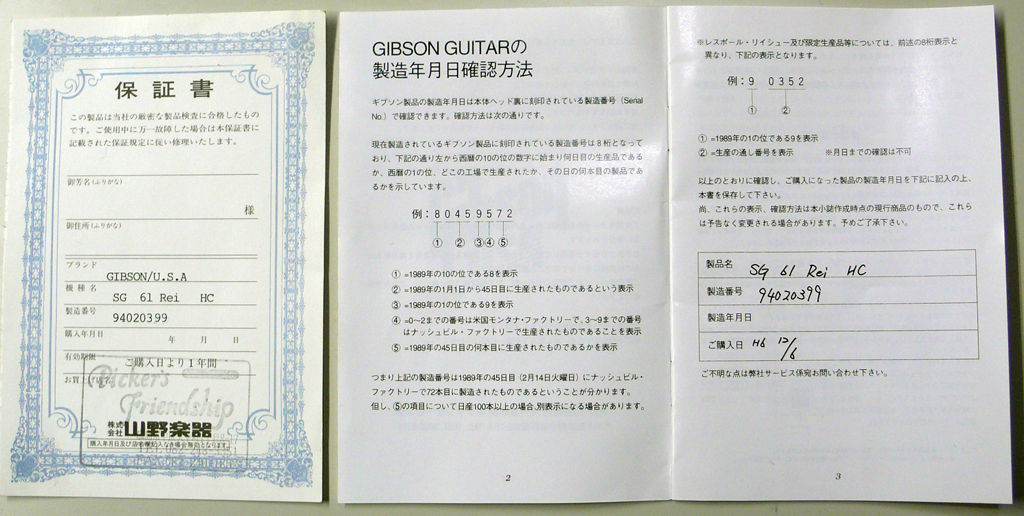 保証書
この製品は当社の厳密な製品検査に合格したもの
です。ご使用中に万一故障した場合は本保証書に
記載された保証規定に従い修理いたします。
御芳名(ふりがな)
様
御住所(ふりがな)
ブランド
GIBSON/U.S.A
機種名
SG 61 Rei HC
製造番号
94020399
購入年月日
年 月 日
有効期限
ご購入日より1年間
お買上げ店名
Picker's
Friendship
株式会社 山野楽器
購入年月日及び店名欄記入なき場合無効となります。
GIBSON GUITARの
製造年月日確認方法
ギブソン製品の製造年月日は本体ヘッド裏に刻印されている製造番号(Serial
No.)で確認できます。確認方法は次の通りです。
現在製造されているギブソン製品に刻印されている製造番号は8桁となって
おり、下記の通り左から西暦の10の位の数字に始まり何日目の生産品である
か、西暦の1の位、どこの工場で生産されたか、その日の何本目の製品であ
るかを示しています。
例:80459572
① ② ③④⑤
①=1989年の10の位である8を表示
②=1989年の1月1日から45日目に生産されたものであるという表示
③=1989年の1の位である9を表示
④=0〜2までの番号は米国モンタナ・ファクトリーで、3〜9までの番号
はナッシュビル・ファクトリーで生産されたものであることを表示
⑤=1989年の45日目の何本目に生産されたものであるかを表示
つまり上記の製造番号は1989年の45日目(2月14日火曜日)にナッシュビル・
ファクトリーで72本目に製造されたものであるということが分かります。
但し、⑤の項目について日産100本以上の場合、別表示になる場合があります。
2
※レスポール・リイシュー及び限定生産品等については、前述の8桁表示と
異なり、下記の表示となります。
例:9 0352
① ②
①=1989年の1の位である9を表示
②=生産の通し番号を表示 ※月日までの確認は不可
以上のとおりに確認し、ご購入になった製品の製造年月日を下記に記入の上、
本書を保存して下さい。
尚、これらの表示、確認方法は本小誌作成時点の現行商品のもので、これら
は予告なく変更される場合があります。予めご了承下さい。
製品名 SG 61 Rei HC
製造番号 94020399
製造年月日
ご購入日 H6 12/6
ご不明な点は弊社サービス係宛お問い合わせ下さい。
3